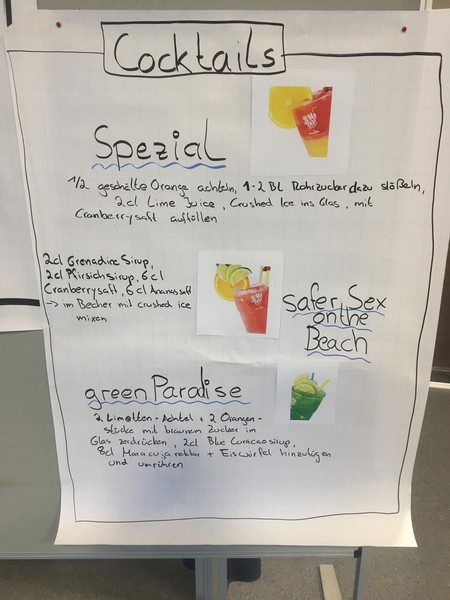 Cocktails
Spezial
1/2 geschälte Orange achteln, 1-2 BL Rohrzucker dazu stößeln,
2cl Lime Juice, Crushed Ice ins Glas, mit
Cranberrysaft auffüllen
2cl Grenadine Sirup,
2cl Pfirsichsirup, 6cl
Cranberrysaft, 6cl Ananassaft
-> im Becher mit crushed ice
mixen
Safer Sex
on the
Beach
green Paradise
2 Limetten-Achtel + 2 Orangen-
stücke mit braunem Zucker im
Glas zerdrücken, 2cl Blue Curacaosirup,
8cl Maracujanektar + Eiswürfel hinzufügen
und umrühren